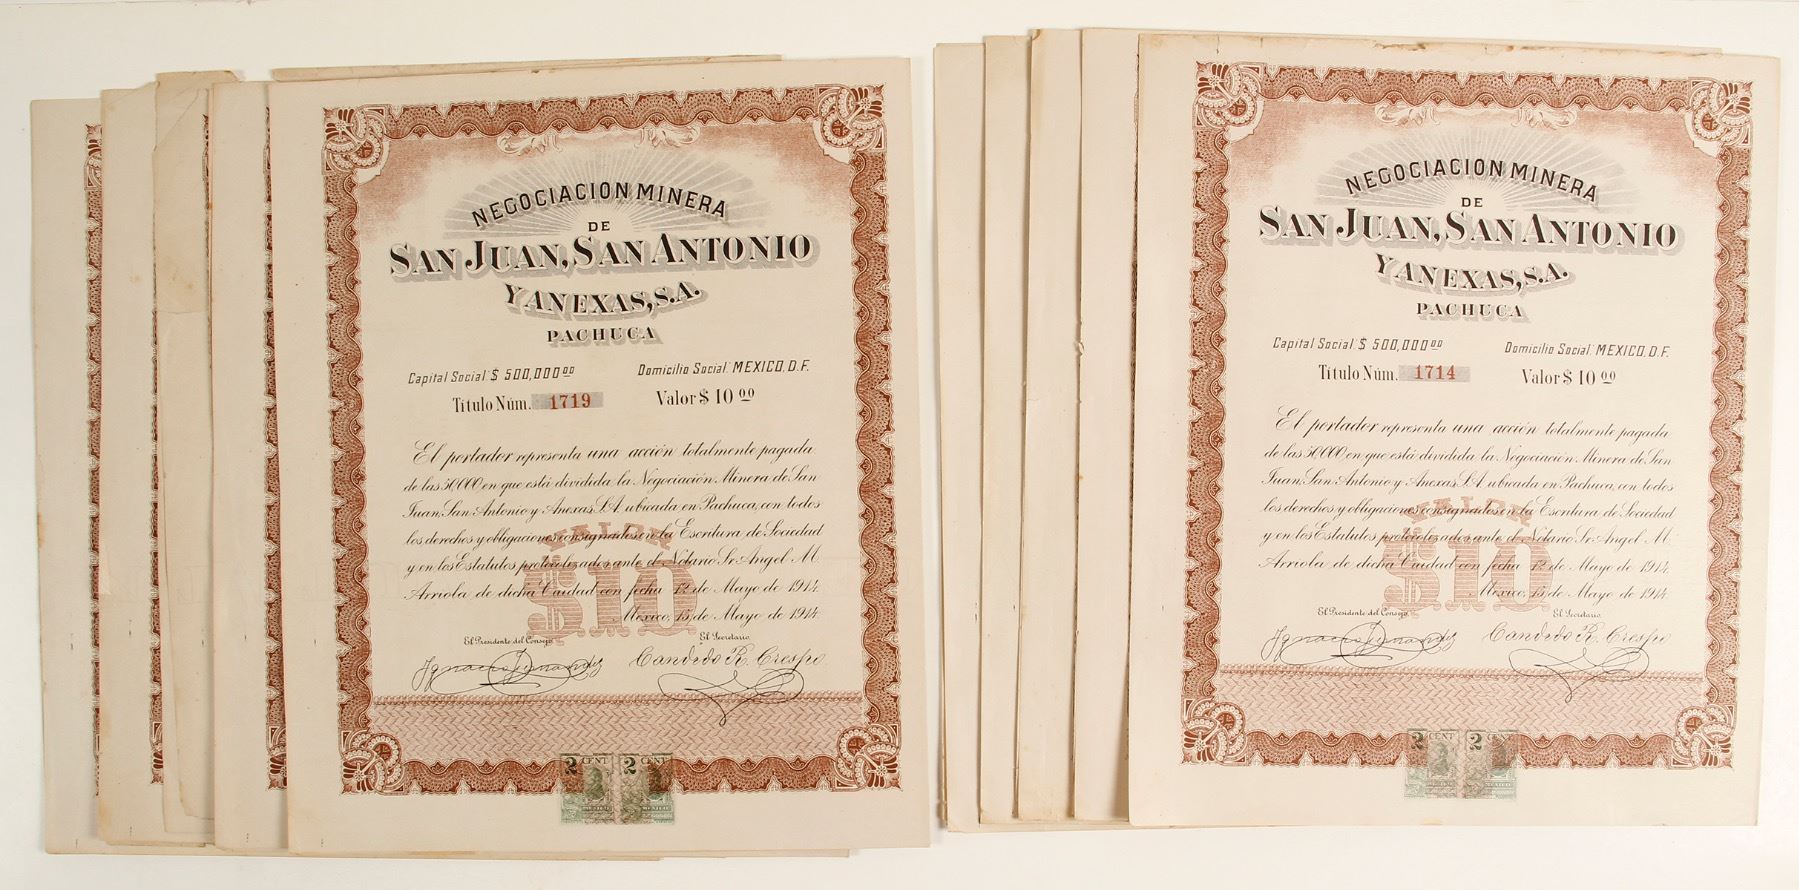 NEGOCIACION MINERA
DE
SAN JUAN, SAN ANTONIO
Y ANEXAS, S.A.
PACHUCA
Capital Social: $ 500,000 00 Domicilio Social: MEXICO, D.F.
Título Núm. 1719 Valor $ 10 00
El portador representa una acción totalmente pagada
de las 50,000 en que está dividida la Negociación Minera de San
Juan, San Antonio y Anexas S.A. ubicada en Pachuca, con todos
los derechos y obligaciones consignados en la Escritura de Sociedad
y en los Estatutos protocolizados ante el Notario Sr. Angel M.
Arriola de dicha Ciudad con fecha 12 de Mayo de 1914.
México, 15 de Mayo de 1914.
VALOR
$10
El Presidente del Consejo, El Secretario,
Ignacio Candido R. Crespo
2 CENT 2 CENT
MEXICO MEXICO
NEGOCIACION MINERA
DE
SAN JUAN, SAN ANTONIO
Y ANEXAS, S.A.
PACHUCA
Capital Social: $ 500,000 00 Domicilio Social: MEXICO, D.F.
Título Núm. 1714 Valor $ 10 00
El portador representa una acción totalmente pagada
de las 50,000 en que está dividida la Negociación Minera de San
Juan, San Antonio y Anexas S.A. ubicada en Pachuca, con todos
los derechos y obligaciones consignados en la Escritura de Sociedad
y en los Estatutos protocolizados ante el Notario Sr. Angel M.
Arriola de dicha Ciudad con fecha 12 de Mayo de 1914.
México, 15 de Mayo de 1914.
VALOR
$10
El Presidente del Consejo, El Secretario,
Ignacio Candido R. Crespo
2 CENT 2 CENT